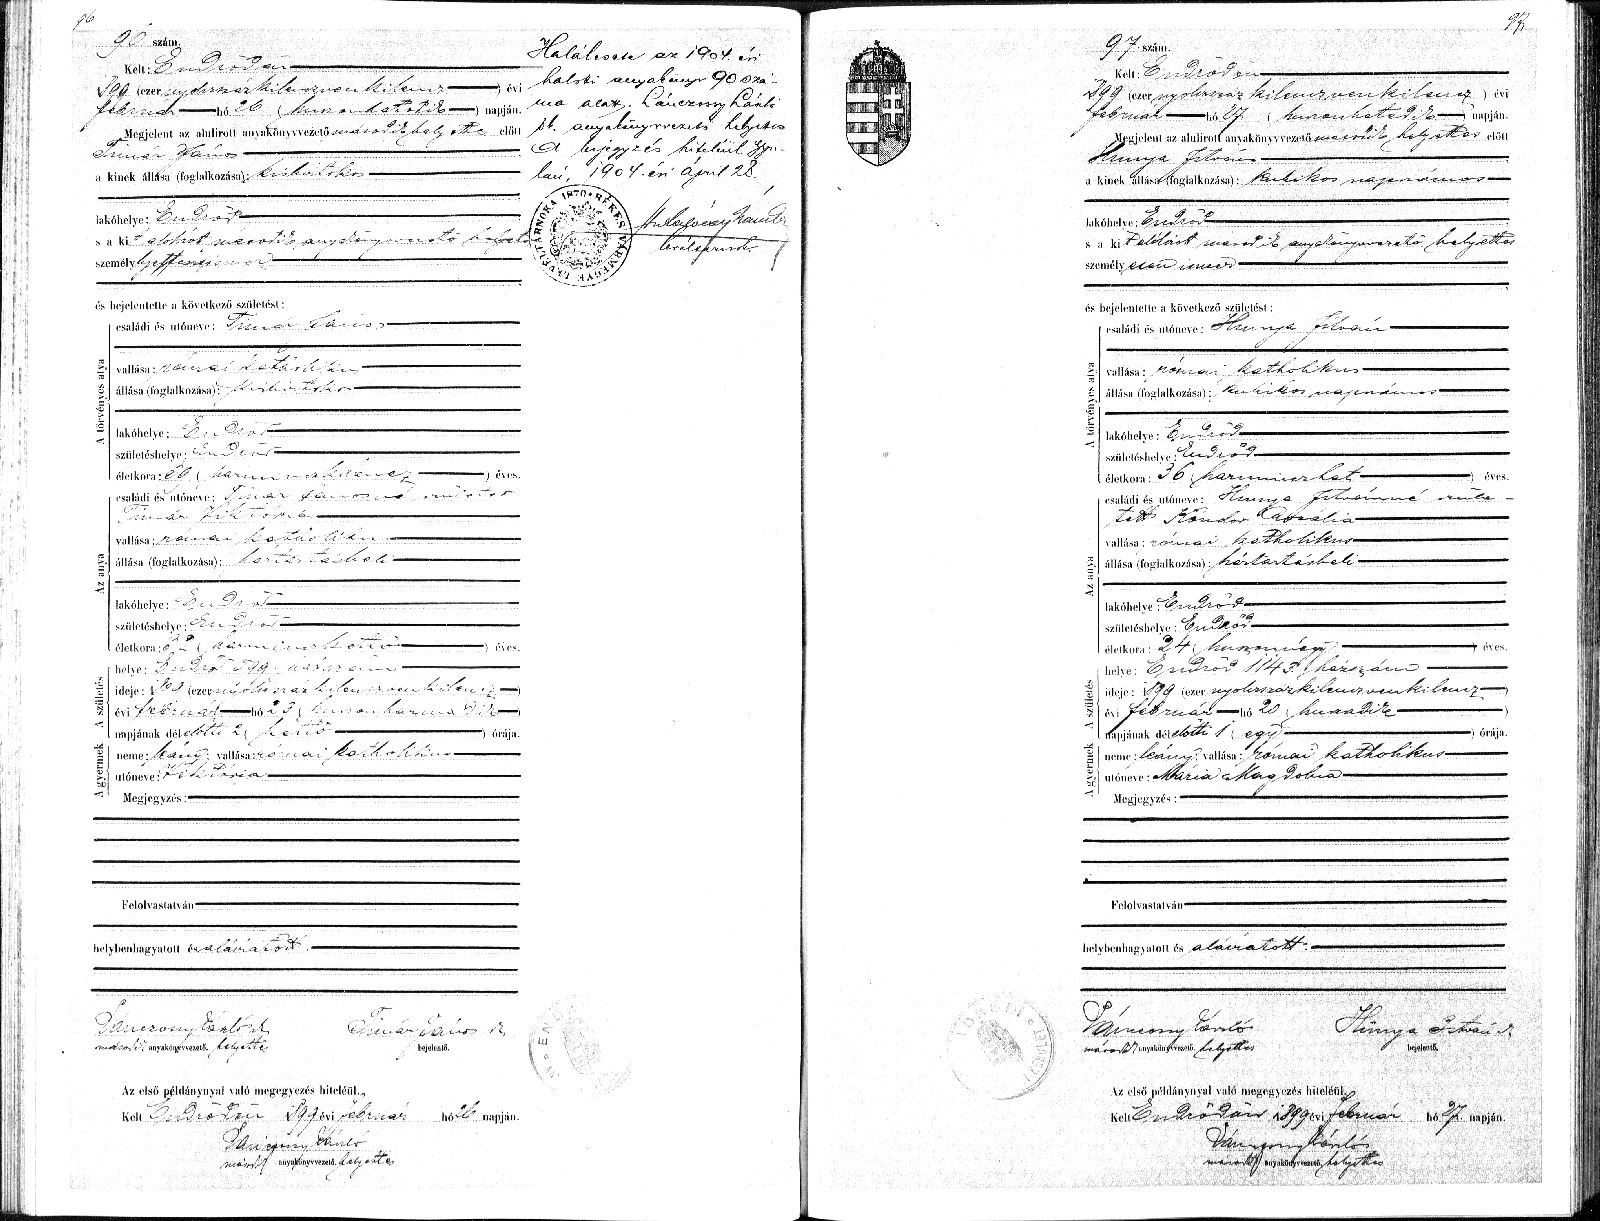 96
96 szám.
Kelt: Endrődön
899 (ezer nyolcszázkilenczvenkilencz) évi
február hó 26 (huszonhatodik) napján.
Megjelent az alulirott anyakönyvvezető második helyettes előtt
Timár János
a kinek állása (foglalkozása): kisbirtokos
lakóhelye: Endrőd
s a kit alólirt második anyakönyvvezető helyettes
személy
és bejelentette a következő születést:
A törvényes atya
családi és utóneve: Timár János
vallása: római
állása (foglalkozása): kisbirtokos
lakóhelye: Endrőd
születéshelye: Endrőd
életkora: ( ) éves.
Az anya
családi és utóneve: Timár Jánosné született
Timár Viktória
vallása: római
állása (foglalkozása): háztartásbeli
lakóhelye: Endrőd
születéshelye: Endrőd
életkora: 32 (harminczkettő) éves.
A születés
helye: Endrőd házszám
ideje: 1899 (ezer nyolcszázkilenczvenkilencz)
évi február hó 23 (huszonharmadik)
napjának délelőtti 2 (kettő) órája.
A gyermek
neme: leány; vallása: római katholikus
utóneve: Viktória
Megjegyzés:
Felolvastatván
helybenhagyatott és aláiratott.
Lánczony László Timár János
másodk anyakönyvvezető. helyettes bejelentő.
Az első példánynyal való megegyezés hiteléül.
Kelt Endrődön 899 évi február hó 26 napján.
Lánczony László
másodk anyakönyvvezető. helyettes
Halálesete az 1904. évi
halotti anyakönyv 90 szá-
ma alatt. Lánczony László
st. anyakönyvvezető helyettes
A bejegyzés hiteléül Gyu-
lán, 1904 évi ápril 28.
BÉKÉS VÁRMEGYE LEVÉLTÁRNOKA 1870
97
97 szám.
Kelt: Endrődön
899 (ezer nyolcszázkilenczvenkilencz) évi
február hó 27 ( ) napján.
Megjelent az alulirott anyakönyvvezető második helyettes előtt
Hunya István
a kinek állása (foglalkozása): kubikos napszámos
lakóhelye: Endrőd
s a kit alólirt második anyakönyvvezető helyettes
személyesen ismer
és bejelentette a következő születést:
A törvényes atya
családi és utóneve: Hunya István
vallása: római katholikus
állása (foglalkozása): kubikos napszámos
lakóhelye: Endrőd
születéshelye: Endrőd
életkora: 36 (harminczhat) éves.
Az anya
családi és utóneve: Hunya Istvánné szüle-
tett Kondor Rozália
vallása: római katholikus
állása (foglalkozása): háztartásbeli
lakóhelye: Endrőd
születéshelye: Endrőd
életkora: 24 (huszonnégy) éves.
A születés
helye: Endrőd 1143 házszám
ideje: 1899 (ezer nyolcszázkilenczvenkilencz)
évi február hó 20 (huszadik)
napjának délelőtti 1 (egy) órája.
A gyermek
neme: leány; vallása: római katholikus
utóneve: Mária Magdolna
Megjegyzés:
Felolvastatván
helybenhagyatott és aláiratott.
Lánczony László Hunya István
másodk anyakönyvvezető. helyettes bejelentő.
Az első példánynyal való megegyezés hiteléül.
Kelt Endrődön 1899 évi február hó 27. napján.
Lánczony László
másodk anyakönyvvezető. helyettes